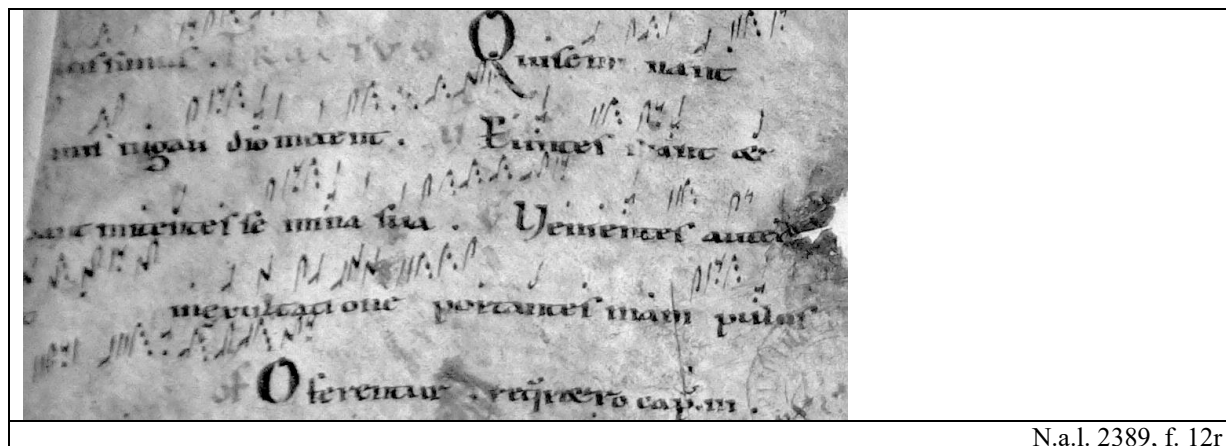 TRACTVS Qui semi nant
in gau dio metent . V Euntes ibant &
bant mittentes se mina sua . V Venientes autē
in exultati one portantes mani pulos
of Offerentur . reqͥre ro cap̄ . III .
N.a.l. 2389, f. 12r